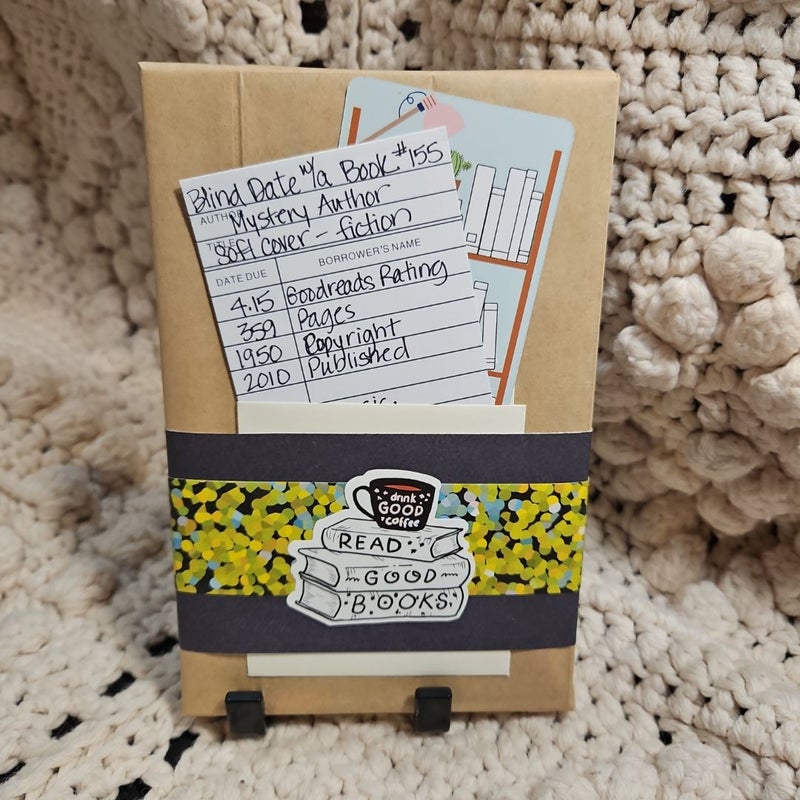 Blind Date w/a Book #155
AUTHOR Mystery Author
TITLE Soft Cover - fiction
DATE DUE BORROWER'S NAME
4.15 Goodreads Rating
359 Pages
1950 Copyright
2010 Published
drink
GOOD
coffee
READ
GOOD
BOOKS